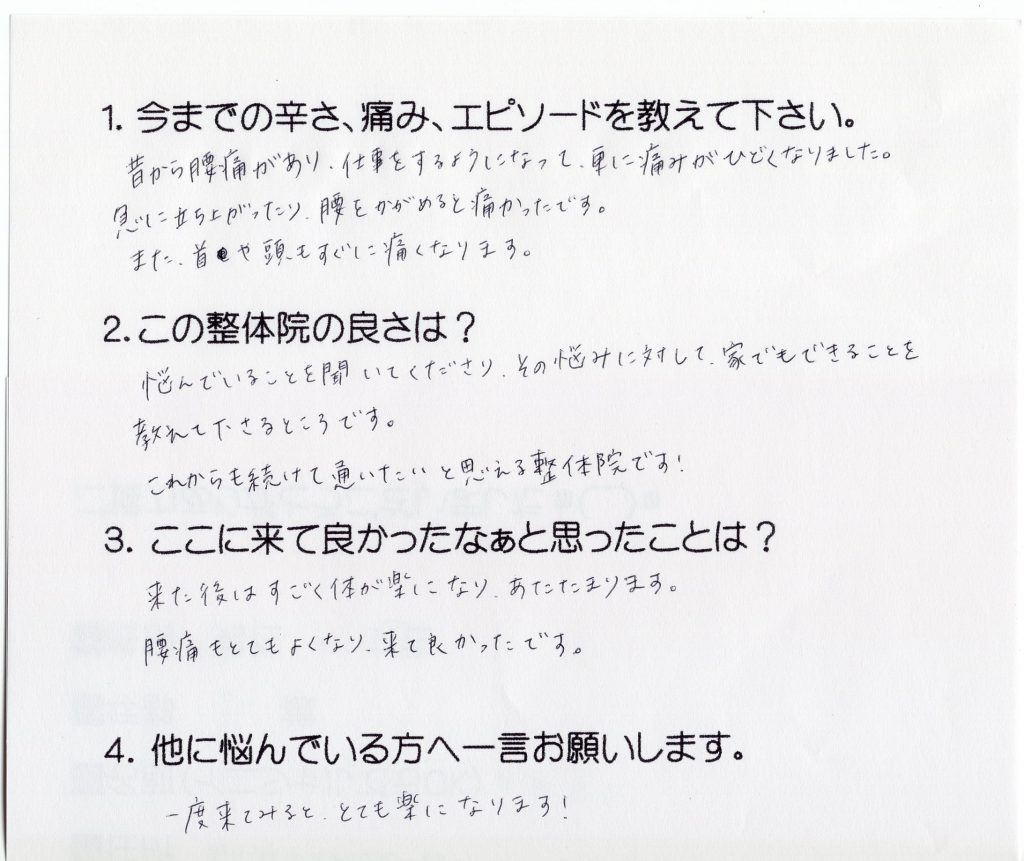 1. 今までの辛さ、痛み、エピソードを教えて下さい。
昔から腰痛があり、仕事をするようになって、更に痛みがひどくなりました。
急に立ち上がったり、腰をかがめると痛かったです。
また、首や頭もすぐに痛くなります。
2. この整体院の良さは？
悩んでいることを聞いてくださり、その悩みに対して、家でもできることを
教えて下さるところです。
これからも続けて通いたいと思える整体院です！
3. ここに来て良かったなぁと思ったことは？
来た後はすごく体が楽になり、あたたまります。
腰痛もとてもよくなり、来て良かったです。
4. 他に悩んでいる方へ一言お願いします。
一度来てみると、とても楽になります！